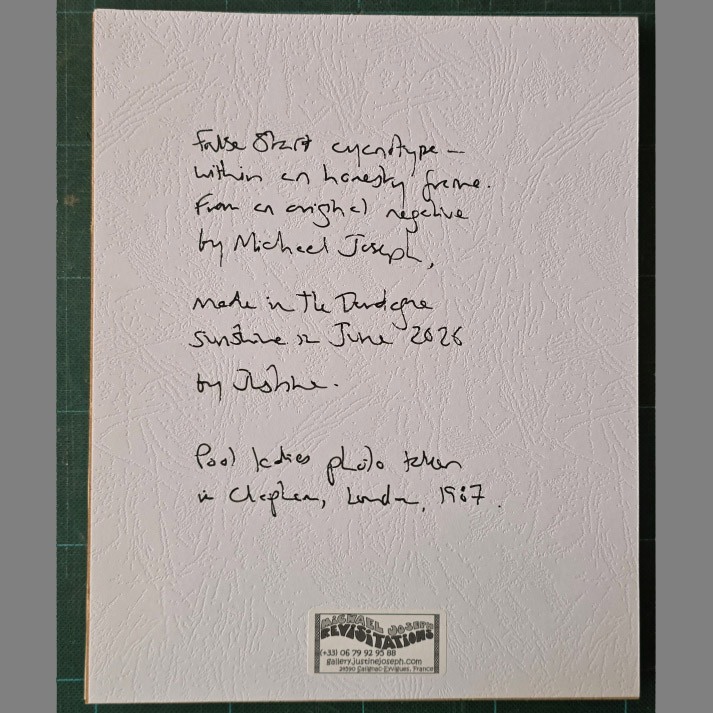 False Start cyanotype —
within an honesty frame.
From an original negative
by Michael Joseph,
made in the Dordogne
sunshine in June 2026
by Justine.
Pool ladies photo taken
in Clapham, London, 1987.
MICHAEL JOSEPH
REVISITATIONS
(+33) 06 79 92 95 88
gallery.justinejoseph.com
24590 Salignac-Eyvigues, France